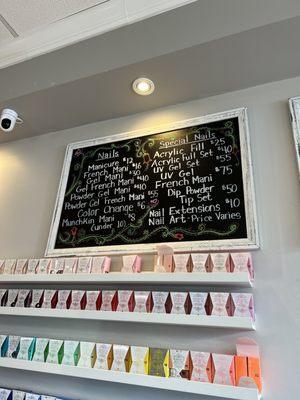 Nails
Manicure $12
French Mani $16
Gel Mani $35
Gel French Mani $40
Powder Gel Mani $45
Powder Gel French Mani $55
Color Change $6
Munchkin Mani $8
(under 10)
Special Nails
Acrylic Fill $25
Acrylic full Set $40
UV Gel Set $55
UV Gel
French Mani $75
Dip Powder $50
Tip Set
Nail Extensions $10
Nail Art - Price Varies